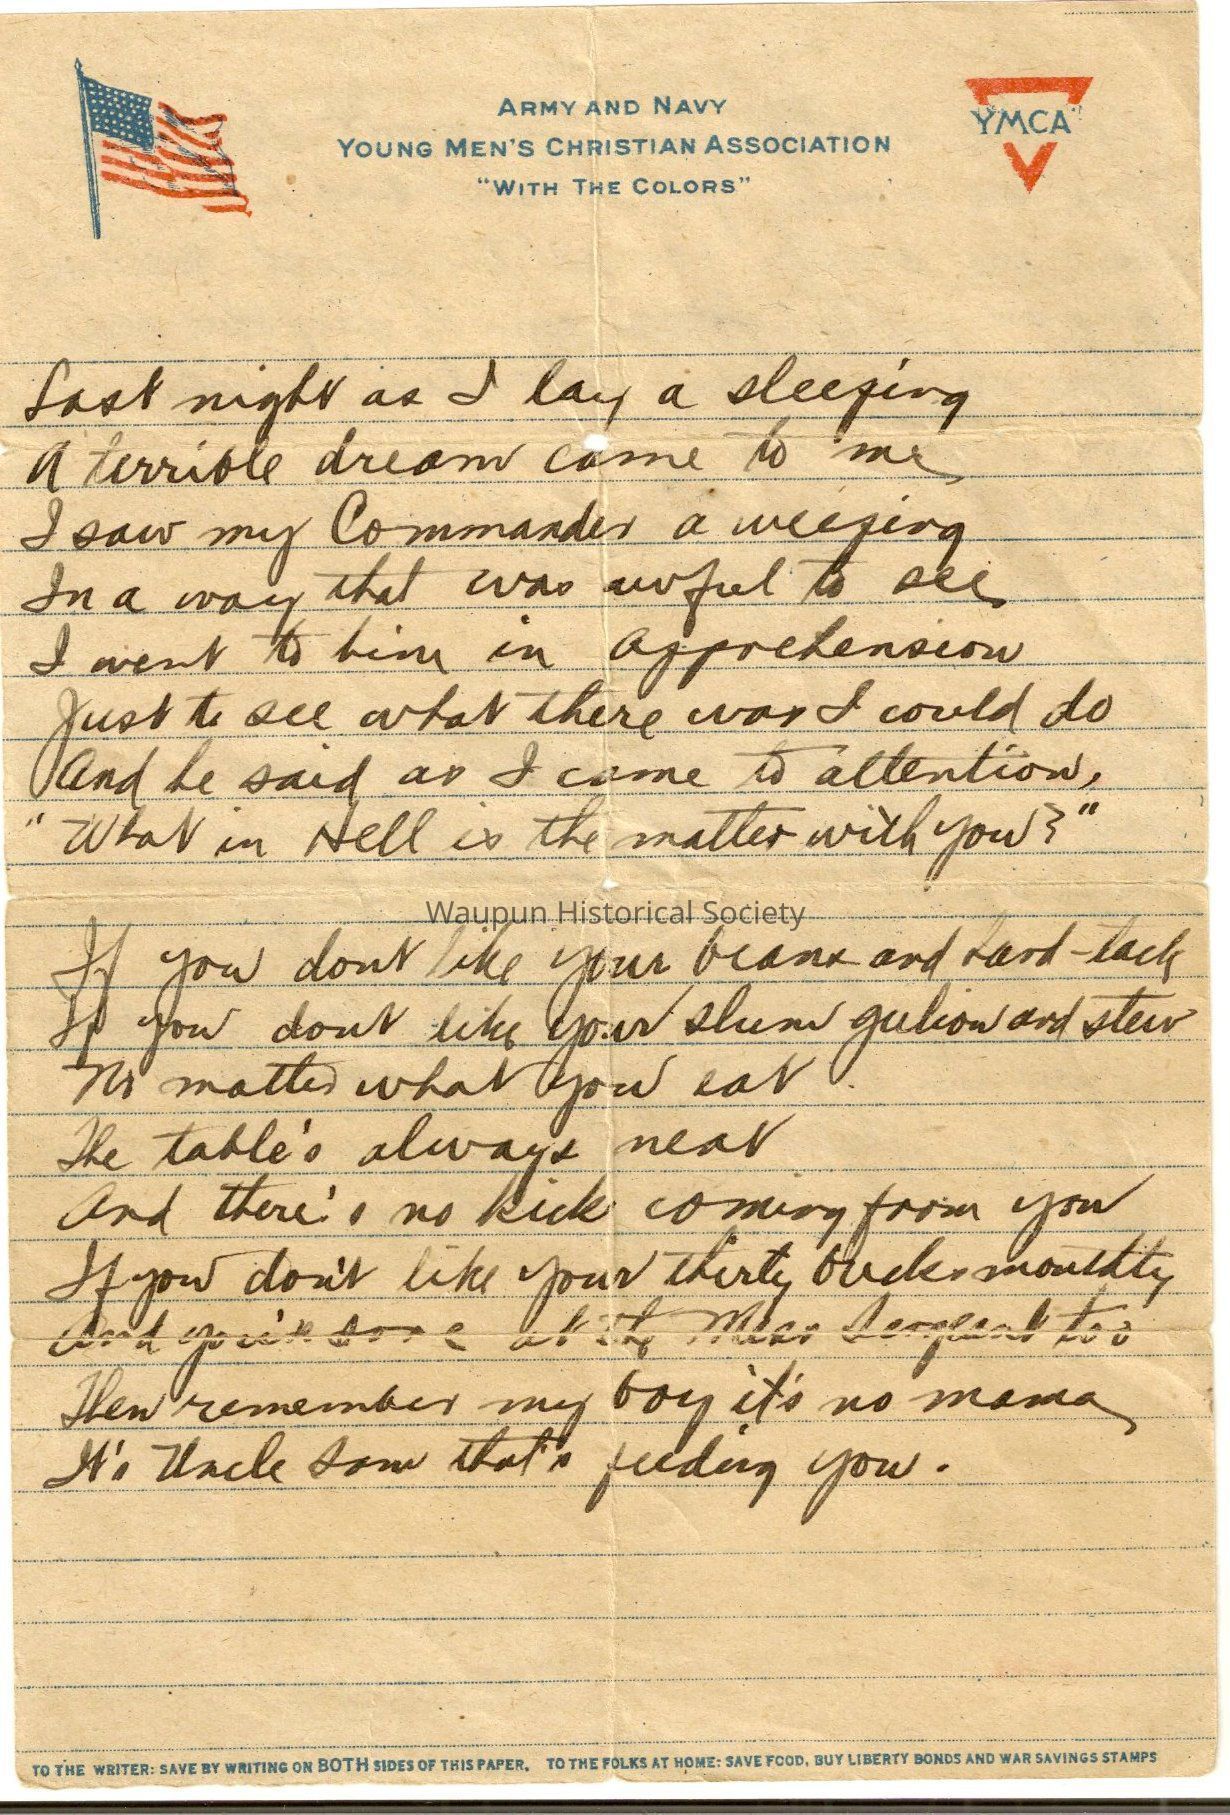 ARMY AND NAVY
YOUNG MEN'S CHRISTIAN ASSOCIATION
"WITH THE COLORS"
YMCA
Last night as I lay a sleeping
A terrible dream came to me
I saw my Commander a weeping
In a way that was awful to see
I went to him in apprehension
Just to see what there was I could do
And he said as I came to attention,
"What in Hell is the matter with you?"
Waupun Historical Society
If you dont like your beans and hard-tack
If you dont like your slum gulion and stew
No matter what you eat
The table's always neat
And there's no kick coming from you
If you don't like your thirty bucks monthly
And you're sore at the Mess Sergeant too
Then remember my boy it's no mama
It's Uncle Sam that's feeding you.
TO THE WRITER: SAVE BY WRITING ON BOTH SIDES OF THIS PAPER. TO THE FOLKS AT HOME: SAVE FOOD, BUY LIBERTY BONDS AND WAR SAVINGS STAMPS